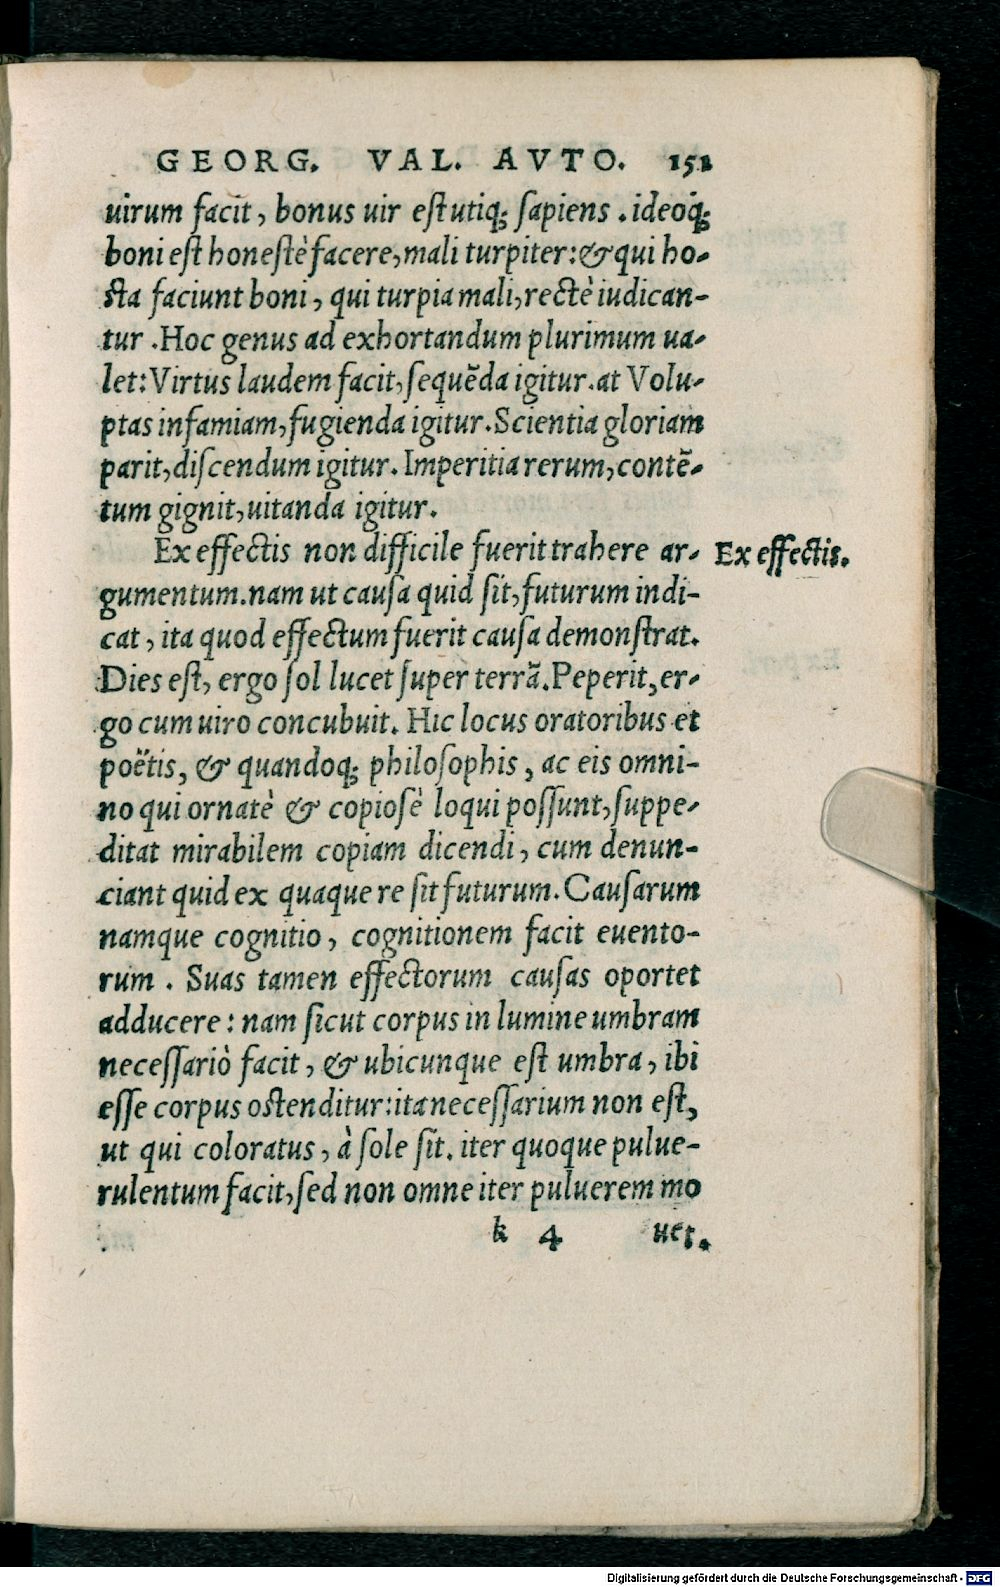 GEORG. VAL. AVTO. 151
uirum facit, bonus uir est utiq; sapiens . ideoq;
boni est honestè facere, mali turpiter: & qui ho-
sta faciunt boni, qui turpia mali, rectè iudican-
tur . Hoc genus ad exhortandum plurimum ua-
let: Virtus laudem facit, sequẽda igitur. at Volu-
ptas infamiam, fugienda igitur. Scientia gloriam
parit, discendum igitur. Imperitia rerum, contẽ-
tum gignit, uitanda igitur.
Ex effectis non difficile fuerit trahere ar- Ex effectis.
gumentum. nam ut causa quid sit, futurum indi-
cat, ita quod effectum fuerit causa demonstrat.
Dies est, ergo sol lucet super terrã. Peperit, er-
go cum uiro concubuit. Hic locus oratoribus et
poëtis, & quandoq; philosophis, ac eis omni-
no qui ornatè & copiosè loqui possunt, suppe-
ditat mirabilem copiam dicendi, cum denun-
ciant quid ex quaque re sit futurum. Causarum
namque cognitio, cognitionem facit euento-
rum . Suas tamen effectorum causas oportet
adducere: nam sicut corpus in lumine umbram
necessariò facit, & ubicunque est umbra, ibi
esse corpus ostenditur: ita necessarium non est,
ut qui coloratus, à sole sit. iter quoque pulue-
rulentum facit, sed non omne iter puluerem mo
k 4 uet.
Digitalisierung gefördert durch die Deutsche Forschungsgemeinschaft - DFG